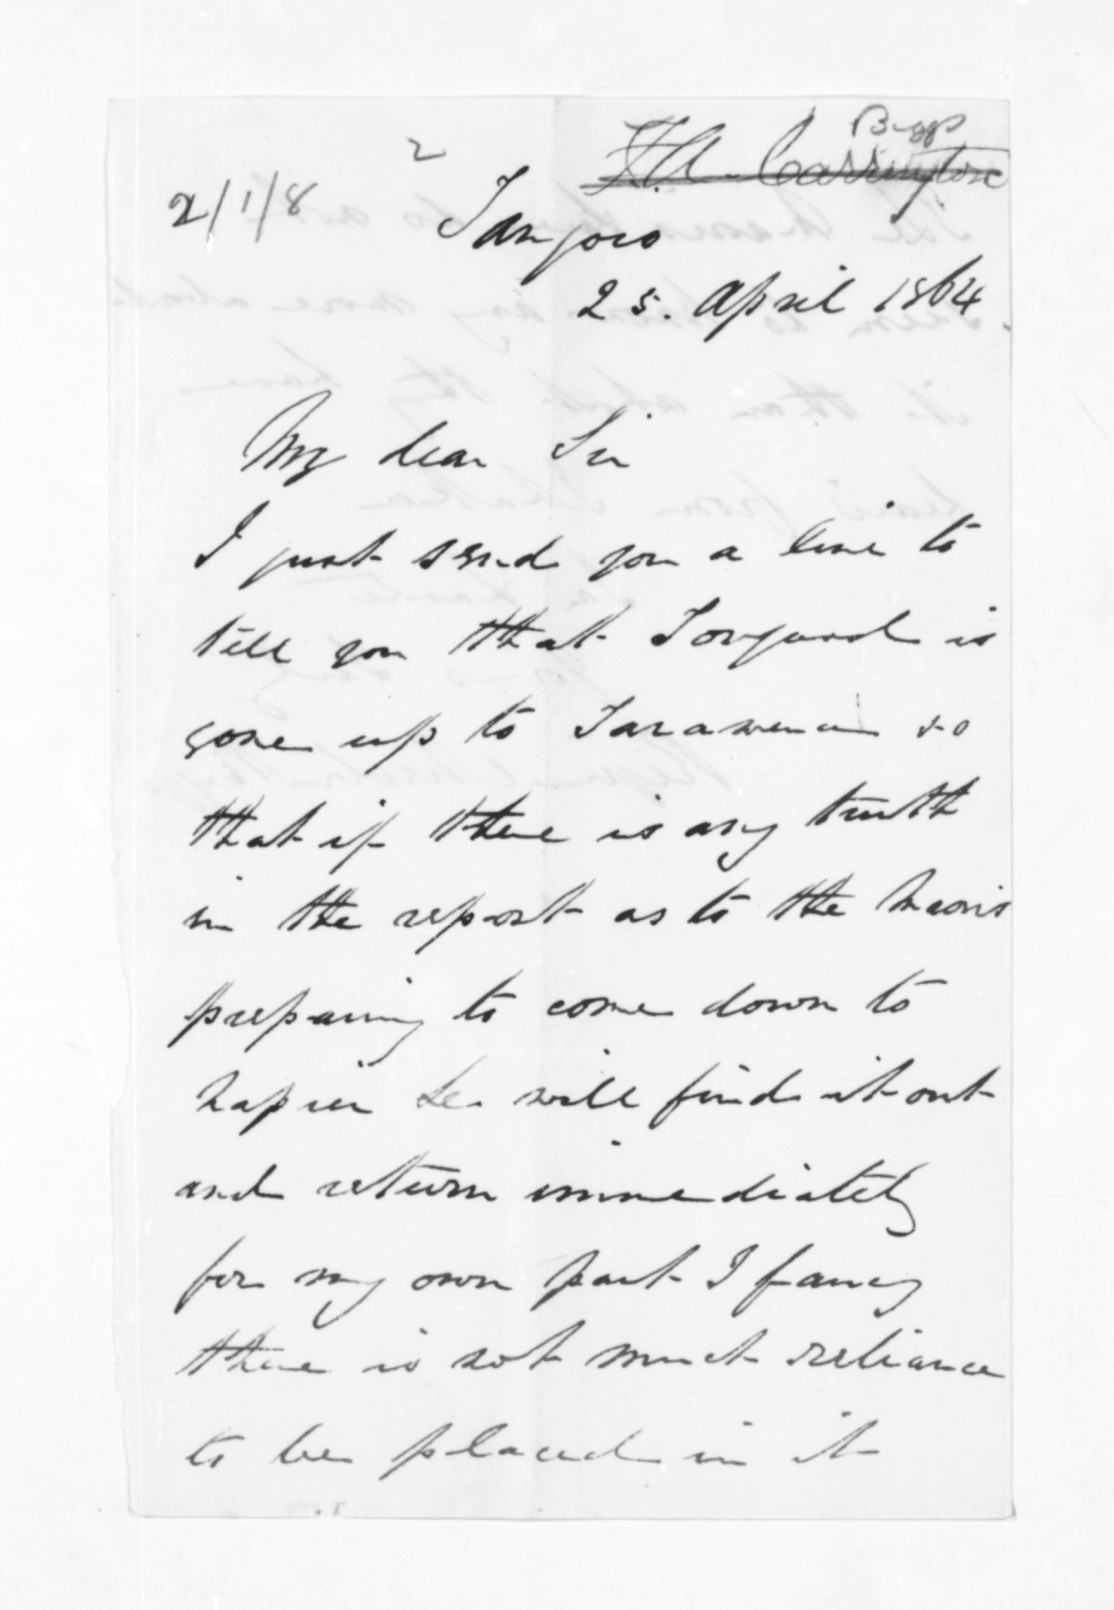 Biggs
F.A. Carrington
2
2/1/8
Tangoio
25. April 1864.
My dear Sir
I just send you a line to
tell you that Tongard is
gone up to Tarawera so
that if there is any truth
in the report as to the Maoris
preparing to come down to
Napier he will find it out
and return immediately
for my own part I fancy
there is not much reliance
to be placed in it